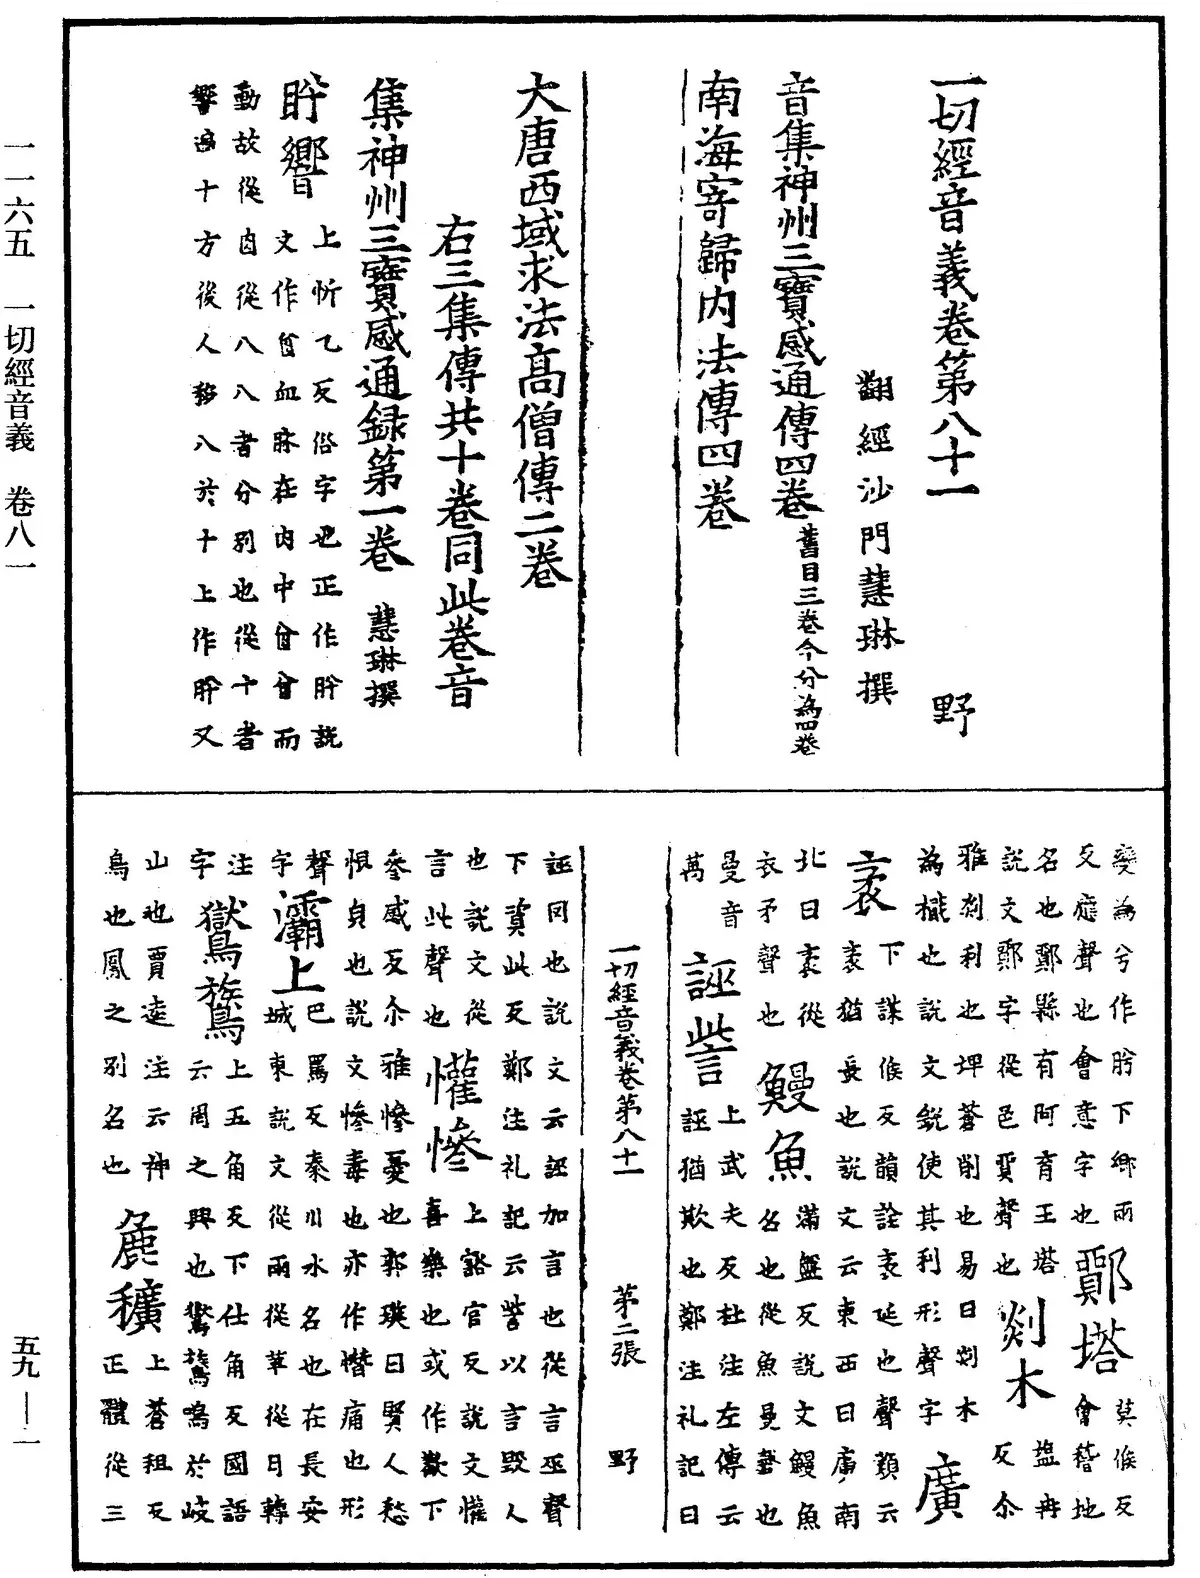 一一六五　一切經音義　卷八一
五九—一
一切經音義卷第八十一　野
翻經沙門慧琳撰
音集神州三寶感通傳四卷舊目三卷今分為四卷
南海寄歸內法傳四卷
大唐西域求法高僧傳二卷
右三集傳共十卷同此卷音
集神州三寶感通録第一卷　慧琳撰
肹響上忻乞反俗字也正作肸説
文作𦙄血脉在肉中𦙄𦙄而
動故從肉從八八者分別也從十者
響遍十方後人移八於十上作肸又
變為兮作肹下鄉兩
反應聲也會意字也鄮塔莫候反會稽地
名也鄮縣有阿育王塔
説文鄮字從邑貿聲也剡木塩冉反尒
雅剡利也埤蒼削也易曰剡木
為檝也説文銳使其利形聲字廣
袤下謀候反韻詮袤延也聲類云
袤猶長也説文云東西曰廣南
北曰袤從
衣矛聲也鰻魚滿盤反説文鰻魚
名也從魚曼聲也
曼音
萬誣訾上武夫反杜注左傳云
誣猶欺也鄭注礼記曰
一切經音義卷第八十一　第二張　野
誣罔也説文云誣加言也從言巫聲
下資此反鄭注礼記云訾以言毀人
也説文從
言此聲也懽慘上豁官反説文懽
喜樂也或作歡下
叅感反尒雅慘憂也郭璞曰賢人愁
恨皃也説文慘毒也亦作憯痛也形
聲
字灞上巴罵反秦川水名也在長安
城東説文從雨從革從月轉
注
字鸑鷟上五角反下仕角反國語
云周之興也鸑鷟鳴於岐
山也賈逵注云神
鳥也鳳之別名也麁穬上蒼租反
正體從三